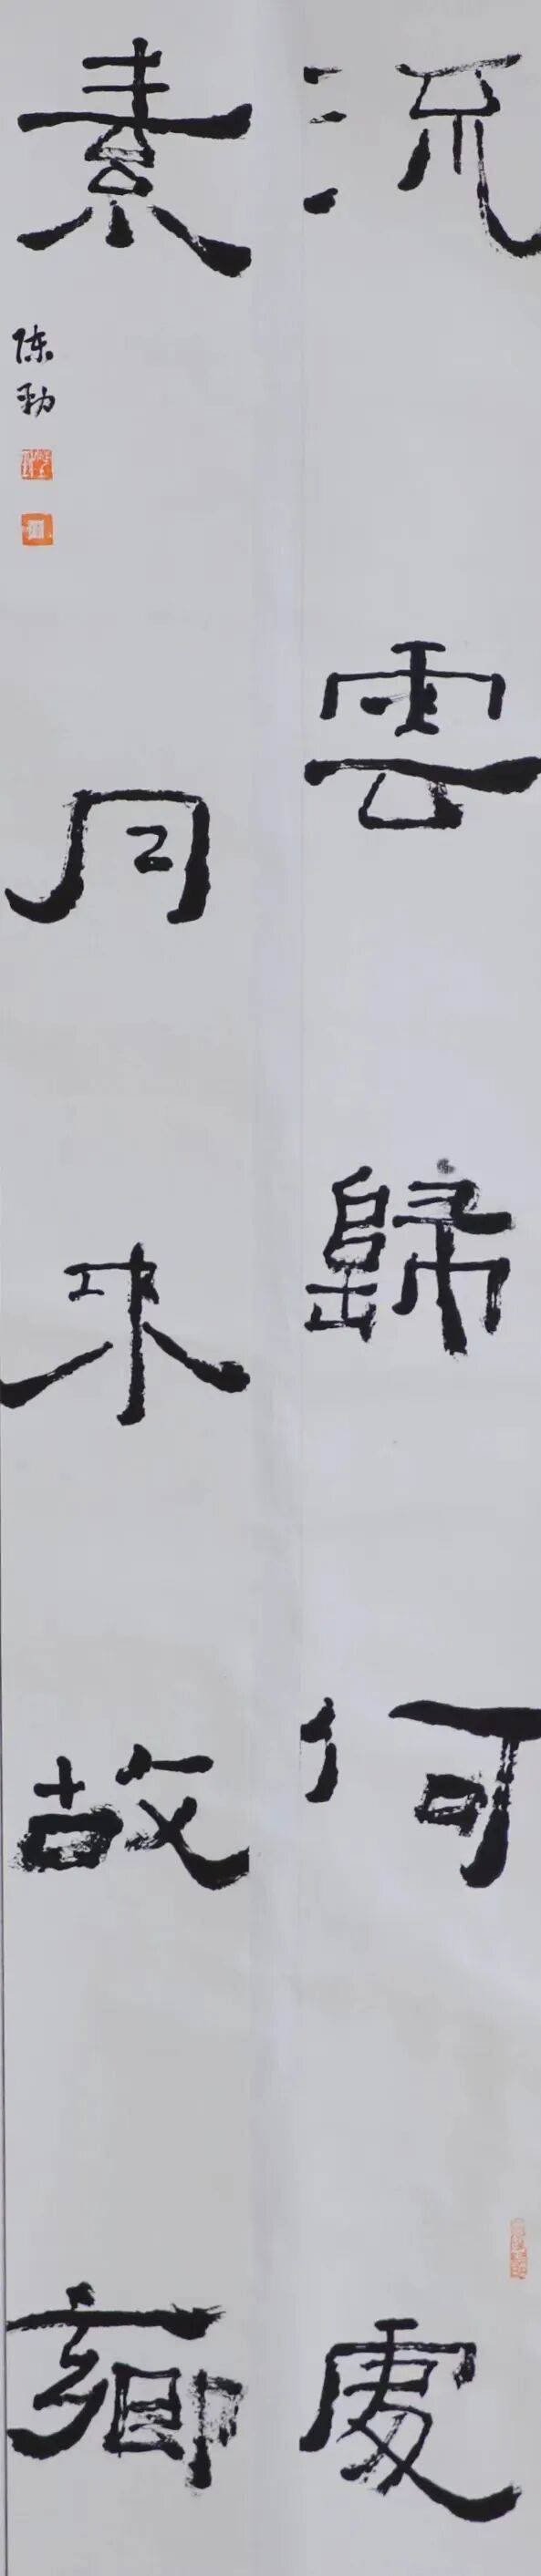 流雲歸何處
素月來故鄉
陈勃